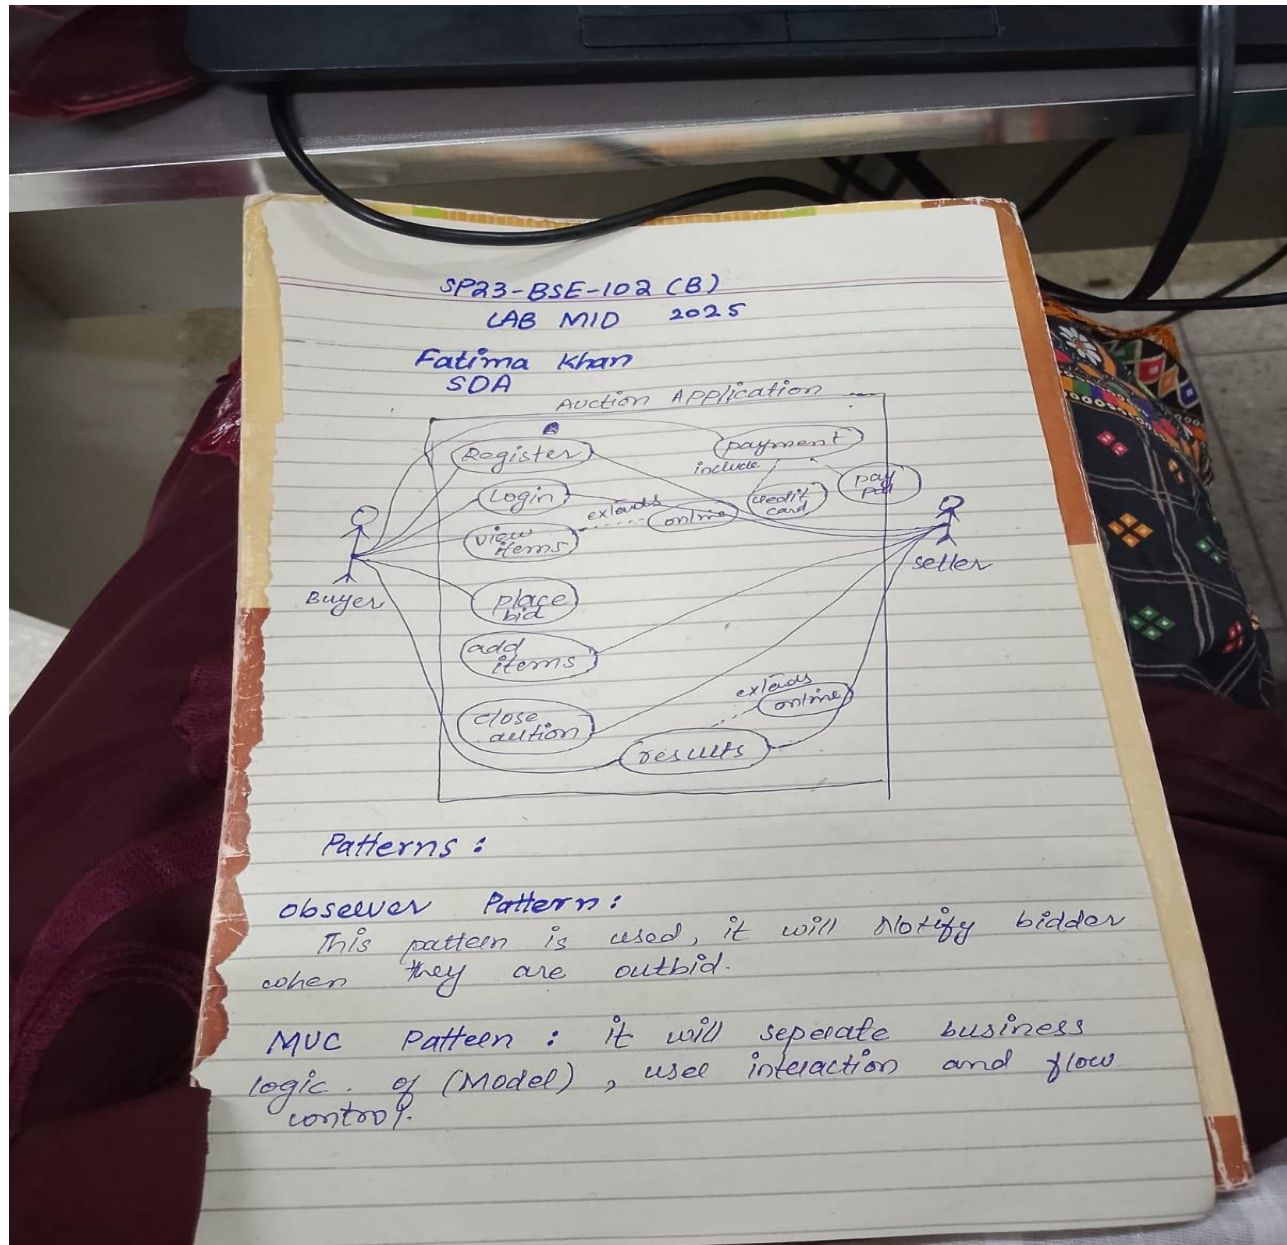 SP23-BSE-102 (B)
LAB MID 2025
Fatima Khan
SDA
Auction Application
Register
payment
include
Login
credit card
pay pal
extends
online
view items
Buyer
seller
place bid
add items
extends
online
close aution
results
Patterns :
obseever Pattern :
This patteen is used, it will Notify bidder
when they are outbid.
MVC Patteen : it will seperate business
logic. of (Model) , user interaction and flow
control.